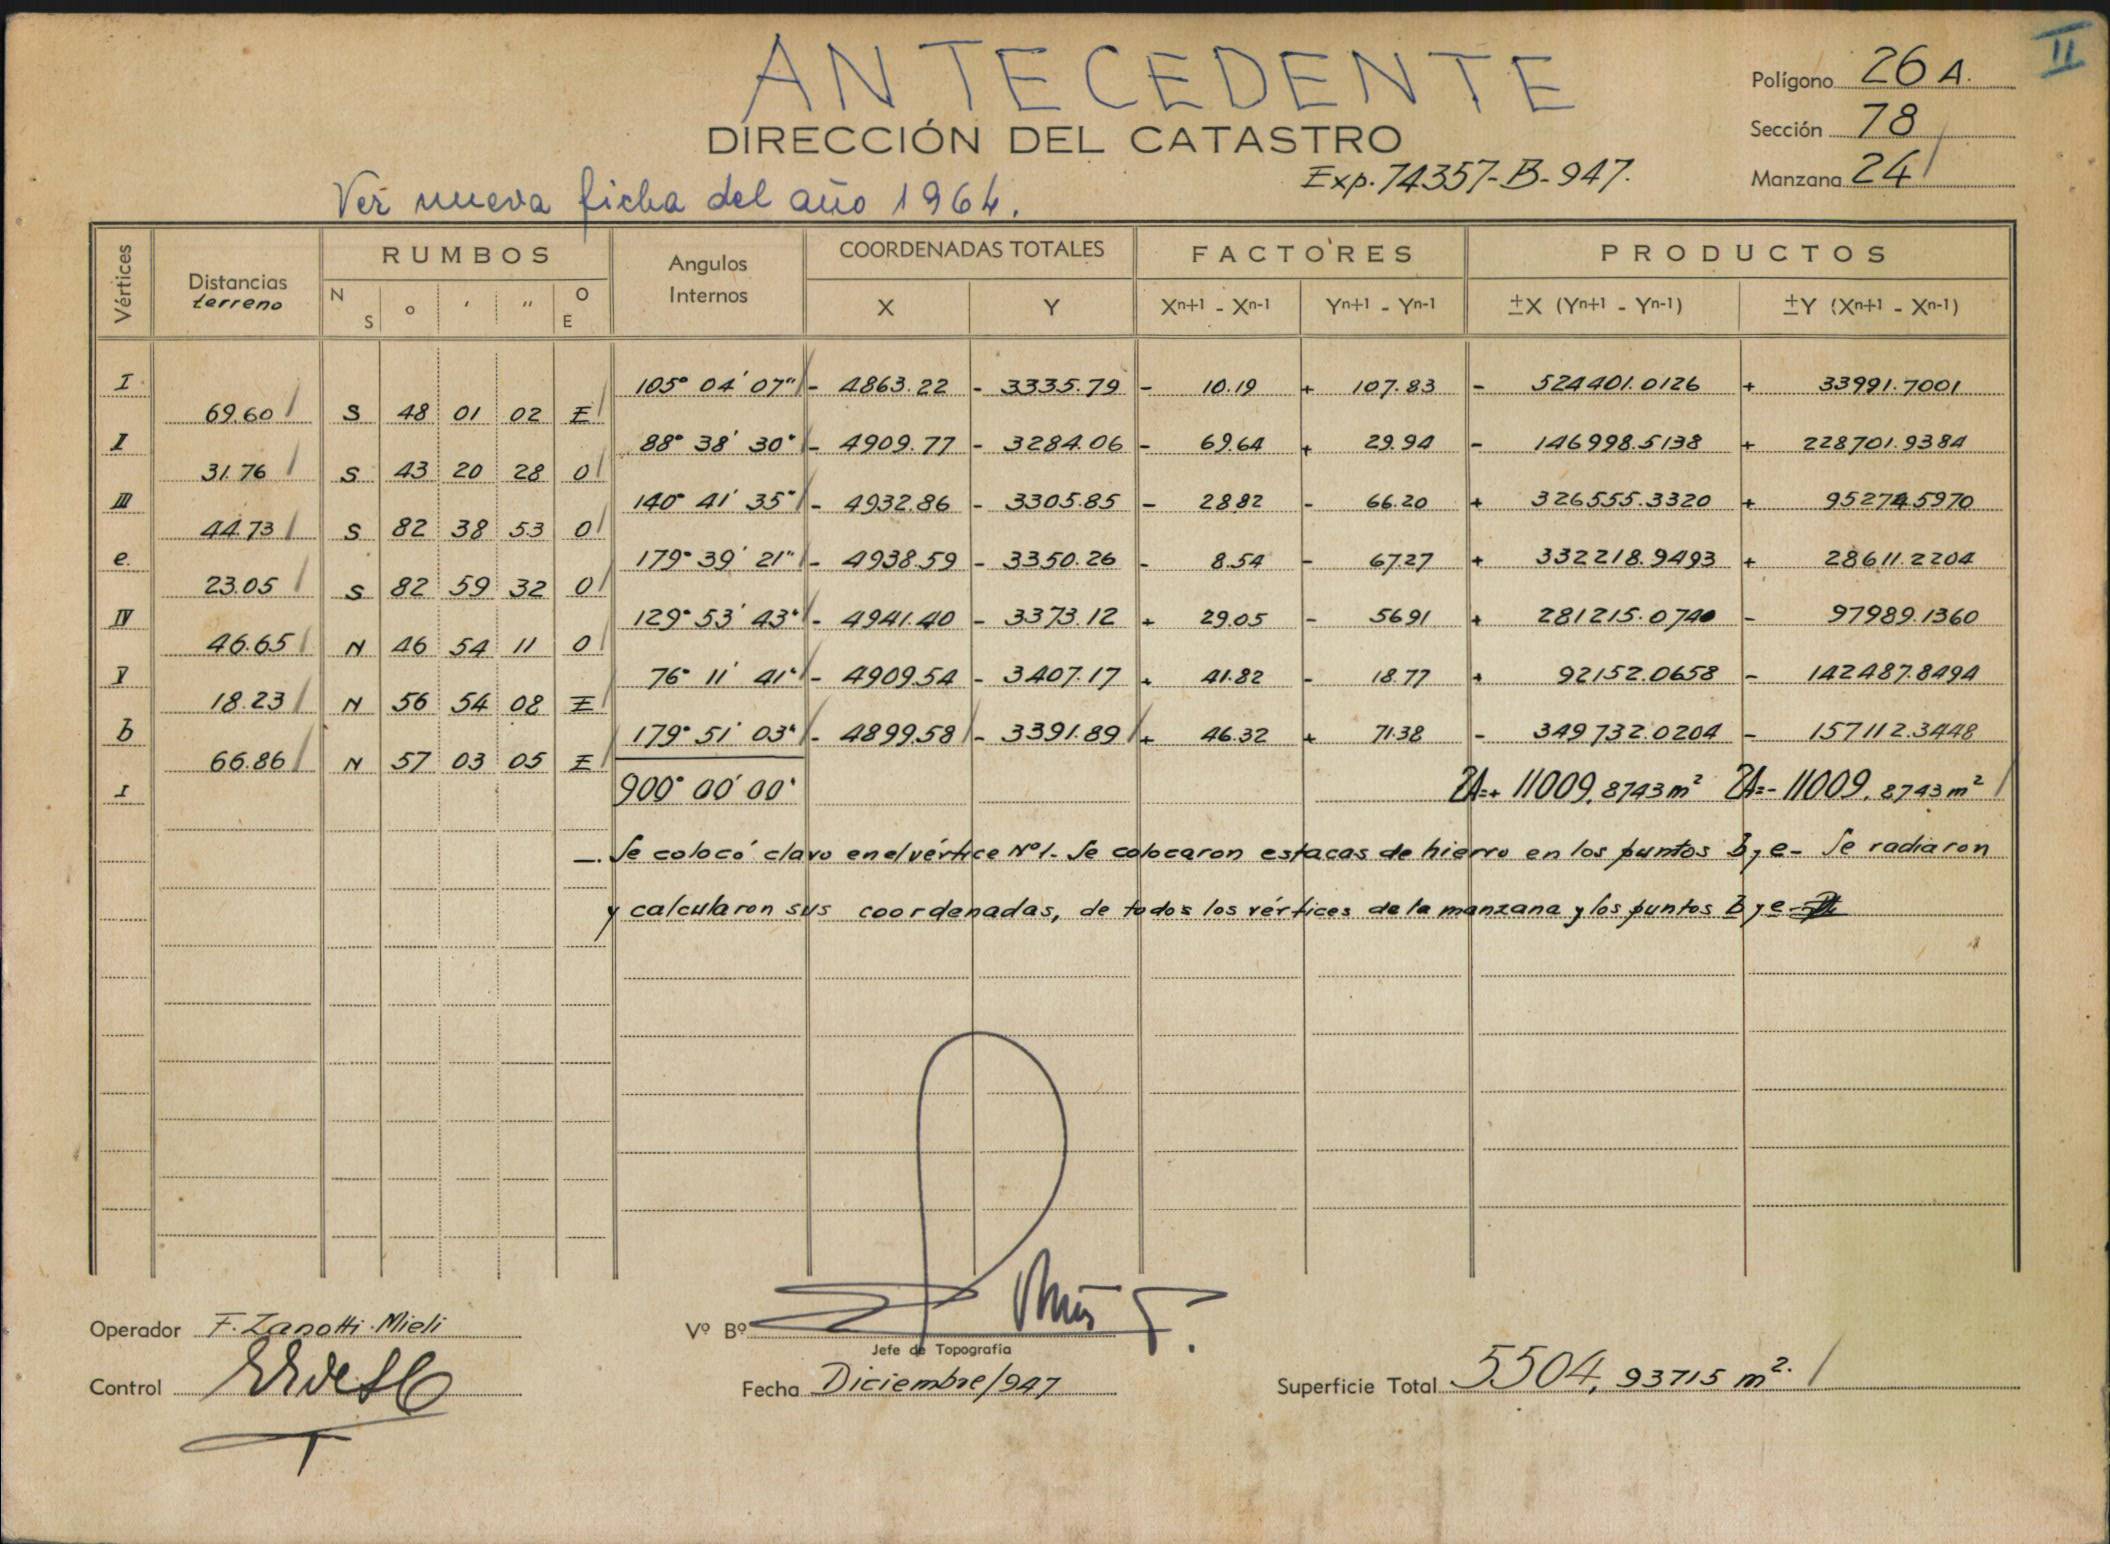 ANTECEDENTE
II
Polígono 26 A.
DIRECCIÓN DEL CATASTRO
Sección 78
Exp. 74357-B-947.
Manzana 24
Ver nueva ficha del año 1964.
Vértices Distancias terreno RUMBOS Angulos Internos COORDENADAS TOTALES FACTORES PRODUCTOS
N S o ' " O E X Y Xn+1 - Xn-1 Yn+1 - Yn-1 ±X (Yn+1 - Yn-1) ±Y (Xn+1 - Xn-1)
I 105° 04' 07" - 4863.22 - 3335.79 - 10.19 + 107.83 - 524401.0126 + 33991.7001
69.60 S 48 01 02 E
I 88° 38' 30" - 4909.77 - 3284.06 - 69.64 + 29.94 - 146998.5138 + 228701.9384
31.76 S 43 20 28 O
III 140° 41' 35" - 4932.86 - 3305.85 - 28.82 - 66.20 + 326555.3320 + 95274.5970
44.73 S 82 38 53 O
e. 179° 39' 21" - 4938.59 - 3350.26 - 8.54 - 67.27 + 332218.9493 + 28611.2204
23.05 S 82 59 32 O
IV 129° 53' 43" - 4941.40 - 3373.12 + 29.05 - 56.91 + 281215.0740 - 97989.1360
46.65 N 46 54 11 O
V 76° 11' 41" - 4909.54 - 3407.17 + 41.82 - 18.77 + 92152.0658 - 142487.8494
18.23 N 56 54 08 E
b 179° 51' 03" - 4899.58 - 3391.89 + 46.32 + 71.38 - 349732.0204 - 157112.3448
66.86 N 57 03 05 E
I 900° 00' 00" 2A=+ 11009,8743 m² 2A=- 11009,8743 m²
—. Se colocó clavo en el vértice Nº1- Se colocaron estacas de hierro en los puntos b y e- Se radiaron
y calcularon sus coordenadas, de todos los vértices de la manzana y los puntos b y e-
Operador F. Zanotti-Mieli
Vº Bº
Jefe de Topografía
Control
Fecha Diciembre/947
Superficie Total 5504,93715 m².